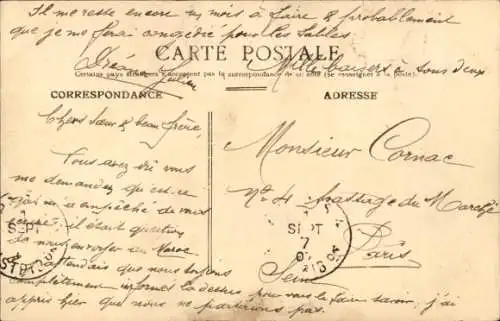 Il me reste encore un mois à faire & probablement
que je me ferai congédié pour les Sables
CARTE POSTALE
Mille baisers à tous deux
Certains pays étrangers n'acceptent pas la correspondance de ce côté (se renseigner à la poste).
CORRESPONDANCE
ADRESSE
Chers Sœur & beau frère,
Vous avez dû vous
me demander qu'est-ce
qui m'a empêché de vous
il était question
de nous envoyer au Maroc
J'attendais que nous soyons
complètement informés là dessus pour vous le faire savoir, j'ai
appris hier que nous ne partirions pas.
Monsieur Cornac
No 4 Passage du Marché
Paris
Seine
SEPT
7
SEPT